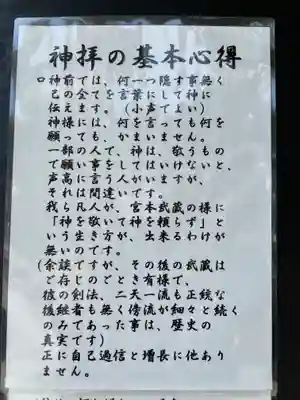 神拝の基本心得
○神前では、何一つ隠す事無く
己の全てを言葉にして神に
伝えます。（小声でよい）
神様には、何を言っても何を
願っても、かまいません。
一部の人で、神は、敬うもの
で願い事をしてはいけないと、
声高に言う人がいますが、
それは間違いです。
我ら凡人が、宮本武蔵の様に
「神を敬いて神を頼らず」と
いう生き方が、出来るわけが
無いのです。
（余談ですが、その後の武蔵は
ご存じのごとき有様で、
彼の剣法、二天一流も正統な
後継者も無く傍流が細々と続く
のみであった事は、歴史の
真実です）
正に自己過信と増長に他あり
ません。